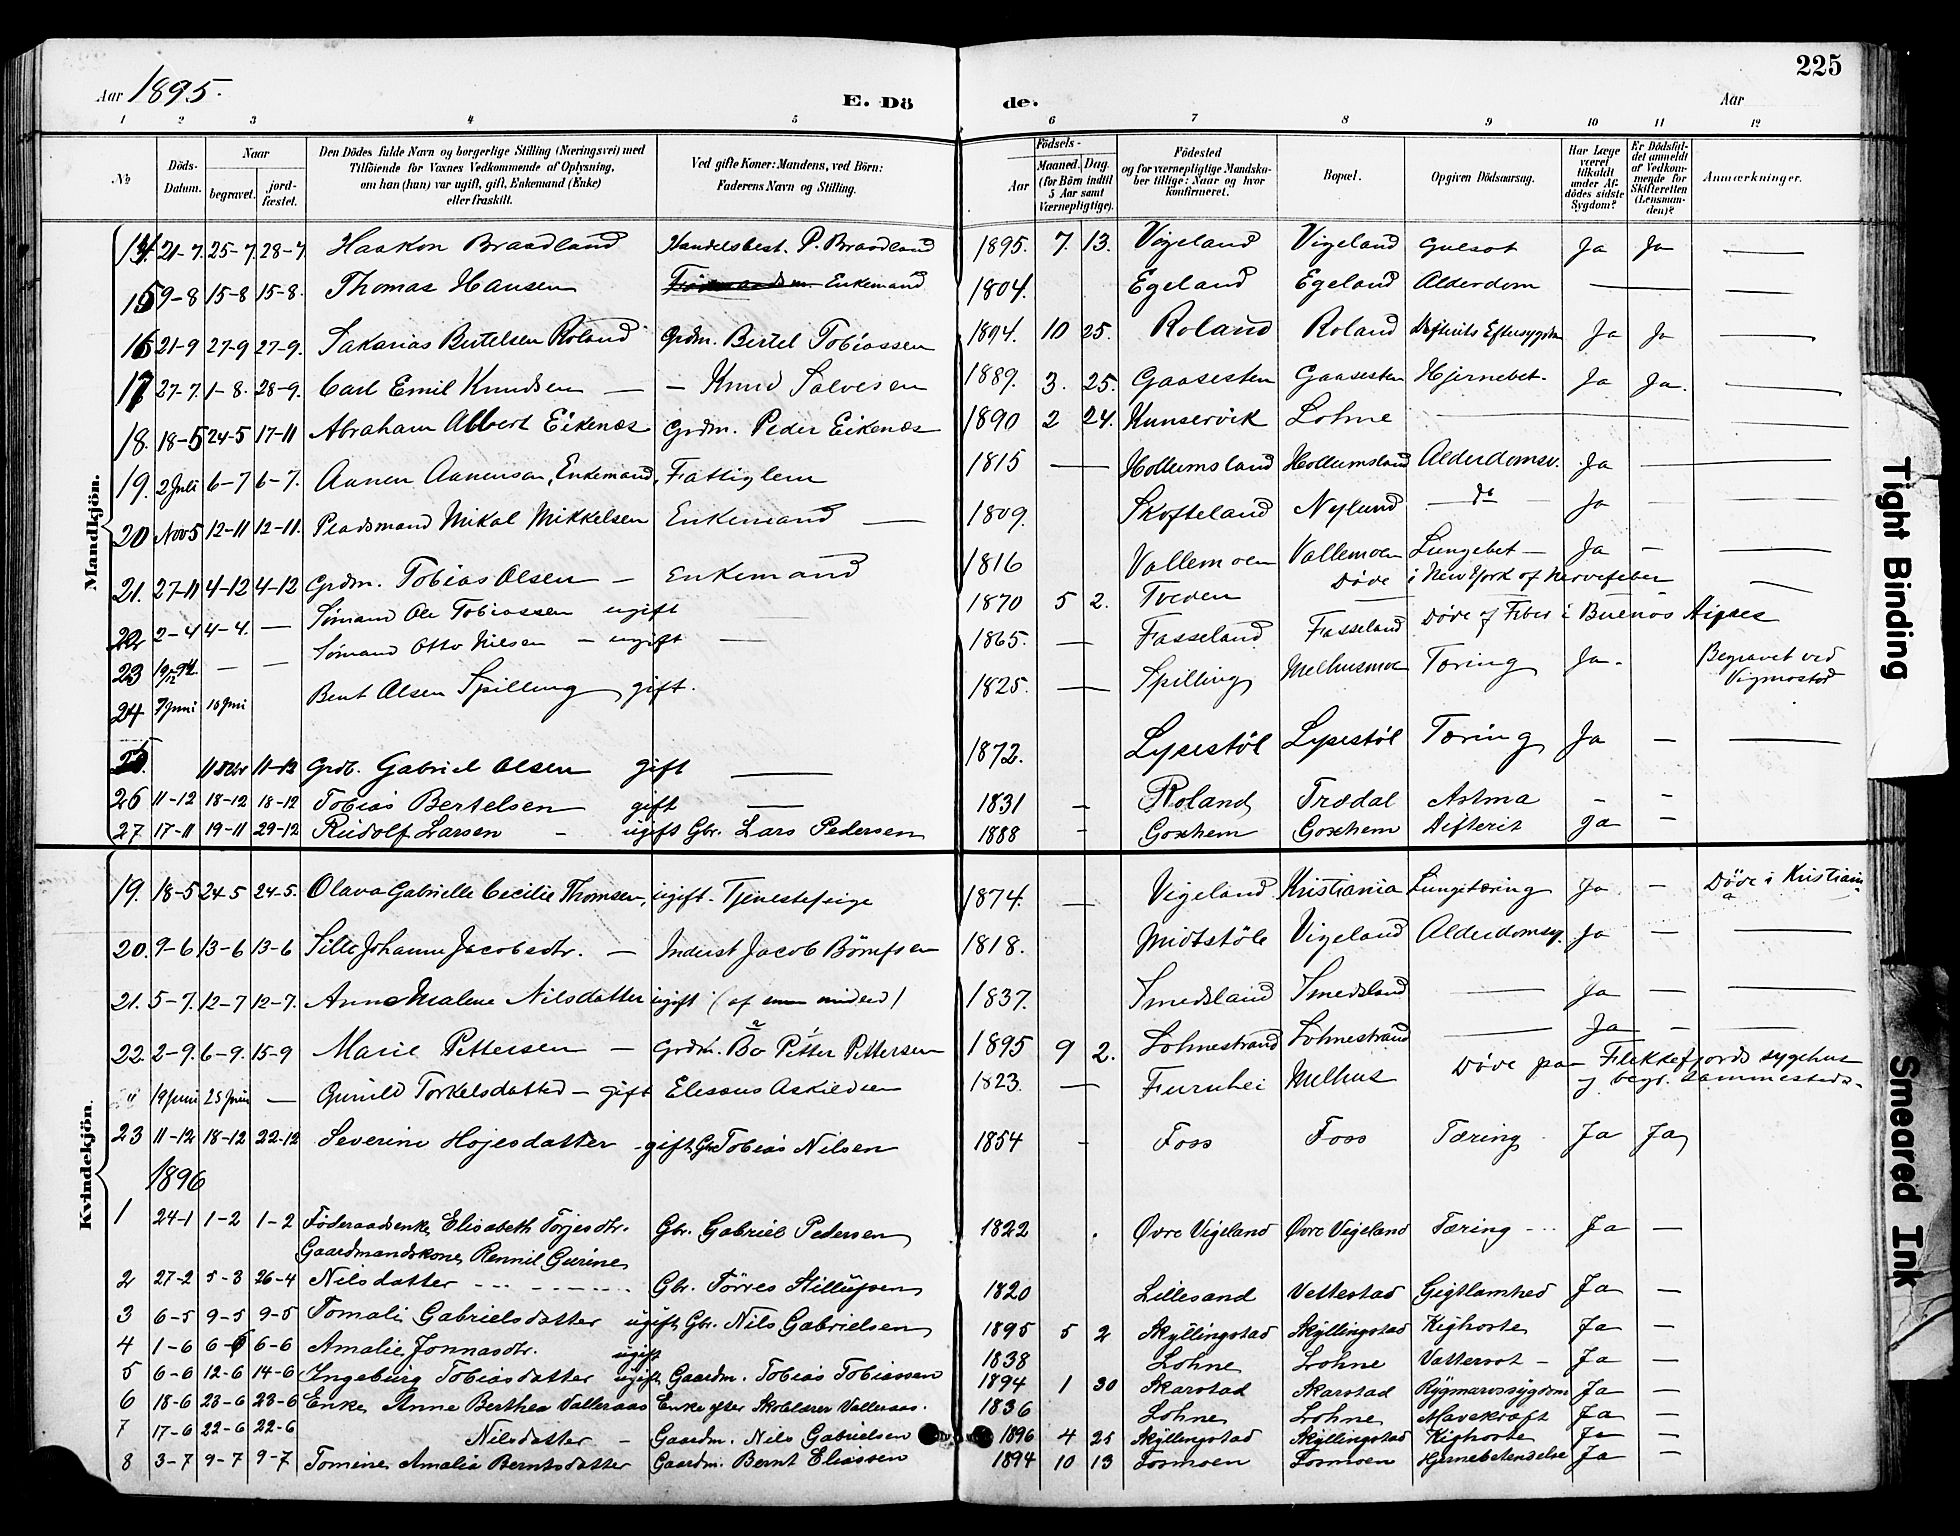 225
Aar 1895. E. Dö de. Aar
1 2 3 4 5 6 7 8 9 10 11 12
№ Döds-Datum. Naar begravet. jord-fæstet. Den Dödes fulde Navn og borgerlige Stilling (Næringsvei) med Tilföiende for Voxnes Vedkommende af Oplysning, om han (hun) var ugift, gift, Enkemand (Enke) eller fraskilt. Ved gifte Koner: Mandens, ved Börn: Faderens Navn og Stilling. Födsels- Aar Maaned. Dag. (for Börn indtil 5 Aar samt Værnepligtige). Födested og for værnepligtige Mandskaber tillige: Naar og hvor konfirmeret. Bopæl. Opgiven Dödsaarsag. Har Læge været tilkaldt under Afdödes sidste Sygdom? Er Dödsfaldet anmeldt af Vedkommende for Skifteretten (Lensmanden)? Anmærkninger.
Mandkjön.
14. 21-7. 25-7. 28-7. Haakon Braadland Handelsbest. P. Braadland 1895. 7. 13. Vigeland Vigeland Gulsot Ja Ja —
15 9-8 15-8 15-8. Thomas Hansen Enkemand 1804. Egeland Egeland Alderdom — —
16 21-9 27-9 27-9. Sakarias Bertelsen Roland Grdm. Bertel Tobiassen 1894. 10 25. Roland Roland Difterits Eftersygdm Ja Ja —
17 27-7. 1-8. 28-9. Carl Emil Knudsen — — Knud Salvesen 1889. 3. 25. Gaasesten Gaasesten Hjernebet. Ja Ja. —
18. 18-5 24-5 17-11 Abraham Albert Eikenæs Grdm. Peder Eikenæs 1890 2 24. Kunservik Lohne — —
19. 2 Juli 6-7 6-7. Aanen Aanensen, Enkemand, Fattiglem 1815 — Hollumsland Hollumsland Alderdomsv. Ja —
20 Nov 5 12-11 12-11. Pladsmand Mikal Mikkelsen Enkemand — 1809. Skofteland Nylund — do — Ja — —
21. 27-11 4-12 4-12 Grdm. Tobias Olsen — Enkemand 1816 Vallemoen Vallemoen Lungebet — Ja — —
22 2-4 4-4. — Sømand Ole Tobiassen ugift — 1870 5 2. Tveden Døde i New York af Nervefeber —
23 19/12 94. — — Sømand Otto Nilsen — ugift — 1865. — Fasseland Fasseland Døde af Feber i Buenos Aires
24 7 Juni 10 Juni Bent Olsen Spilling gift. 1825. — Spilling Melhusmoe Tæring Ja. Begravet ved Vigmostad
25. 11-12 Grdb. Gabriel Olsen gift — 1872. Lysestøl Lysestøl Tæring Ja — —
26 11-12 18-12 18-12 Tobias Bertelsen gift — 1831 — Roland Trædal Astma - -
27. 17-11 19-11 29-12 Rudolf Larsen - ugift Gbr. Lars Pedersen 1888 - Goxhem Goxhem Difterit Ja —
Kvindekjön.
19. 18-5 24-5 24-5. Olava Gabrielle Cecilie Thomsen, ugift. Tjenestepige 1874. — Vigeland Kristiania Lungetæring Ja. — Døde i Kristiania
20. 9-6 13-6 13-6 Johanne Jacobsdtr. — Inderst Jacob 1818. Midtstöle Vigeland Alderdomsv. Ja — —
21. 5-7. 12-7 12-7. Anne Malene Nilsdatter ugift 1837. Smedsland Smedsland — Ja — —
22. 2-9. 6-9. 15-9 Marie Pettersen — Grdm. Bo Petter Pettersen 1895 9 2. Lohnestrand Lohnestrand — Ja — —
" 19 Juni 25 Juni — Gunild Torkelsdatter — gift Eliseus Askildsen 1823. — Furuhei Melhus Døde paa Flekkefjords sygehus
og begr. sammesteds.
23 11-12 18-12 22-12 Severine Hojesdatter - gift, Gbr. Tobias Nilsen 1854 - Foss Foss Tæring Ja Ja
1896
1 24-1 1-2 1-2 Föderaadsenke Elisabeth Torjesdtr. Gbr. Gabriel Pedersen 1822 Øvre Vigeland Øvre Vigeland Tæring - .. Ja —
Gaardmandskone Rennil Gurine
2 27-2 5-3 26-4 Nilsdatter Gbr. Törres 1820 Lillesand Vettestad Gigtlamhed Ja —
3 6-5 9-5 9-5 Tomalie Gabrielsdatter ugift, Gbr. Nils Gabrielsen 1895 5 2 Skyllingstad Skyllingstad Kighoste Ja —
4 1-6 6-6 6-6 Amalie Jonnasdtr. ugift 1838 Lohne Lohne Vattersot — Ja —
5 6-6 12-6 14-6 Ingeborg Tobiasdatter ugift, Gaardm. Tobias Tobiassen 1894 1 30 Skarstad Skarstad Rygmarvssygdom Ja —
6 18-6 23-6 23-6 Enke Anne Berthea Valleraas Enke efter Skolelærer Valleraas. 1836 Lohne Lohne Mavekræft Ja —
7 17-6 22-6 22-6 Nilsdatter - Gaardm. Nils Gabrielsen 1896 4 25 Skyllingstad Skyllingstad Kighoste Ja —
8 3-7 9-7 9-7 Tomine Amalia Berntsdatter Gaardm. Bernt Eliassen 1894 10 13 Fosmoen Fosmoen Hjernebetendelse Ja —
Tight Binding
Smeared Ink